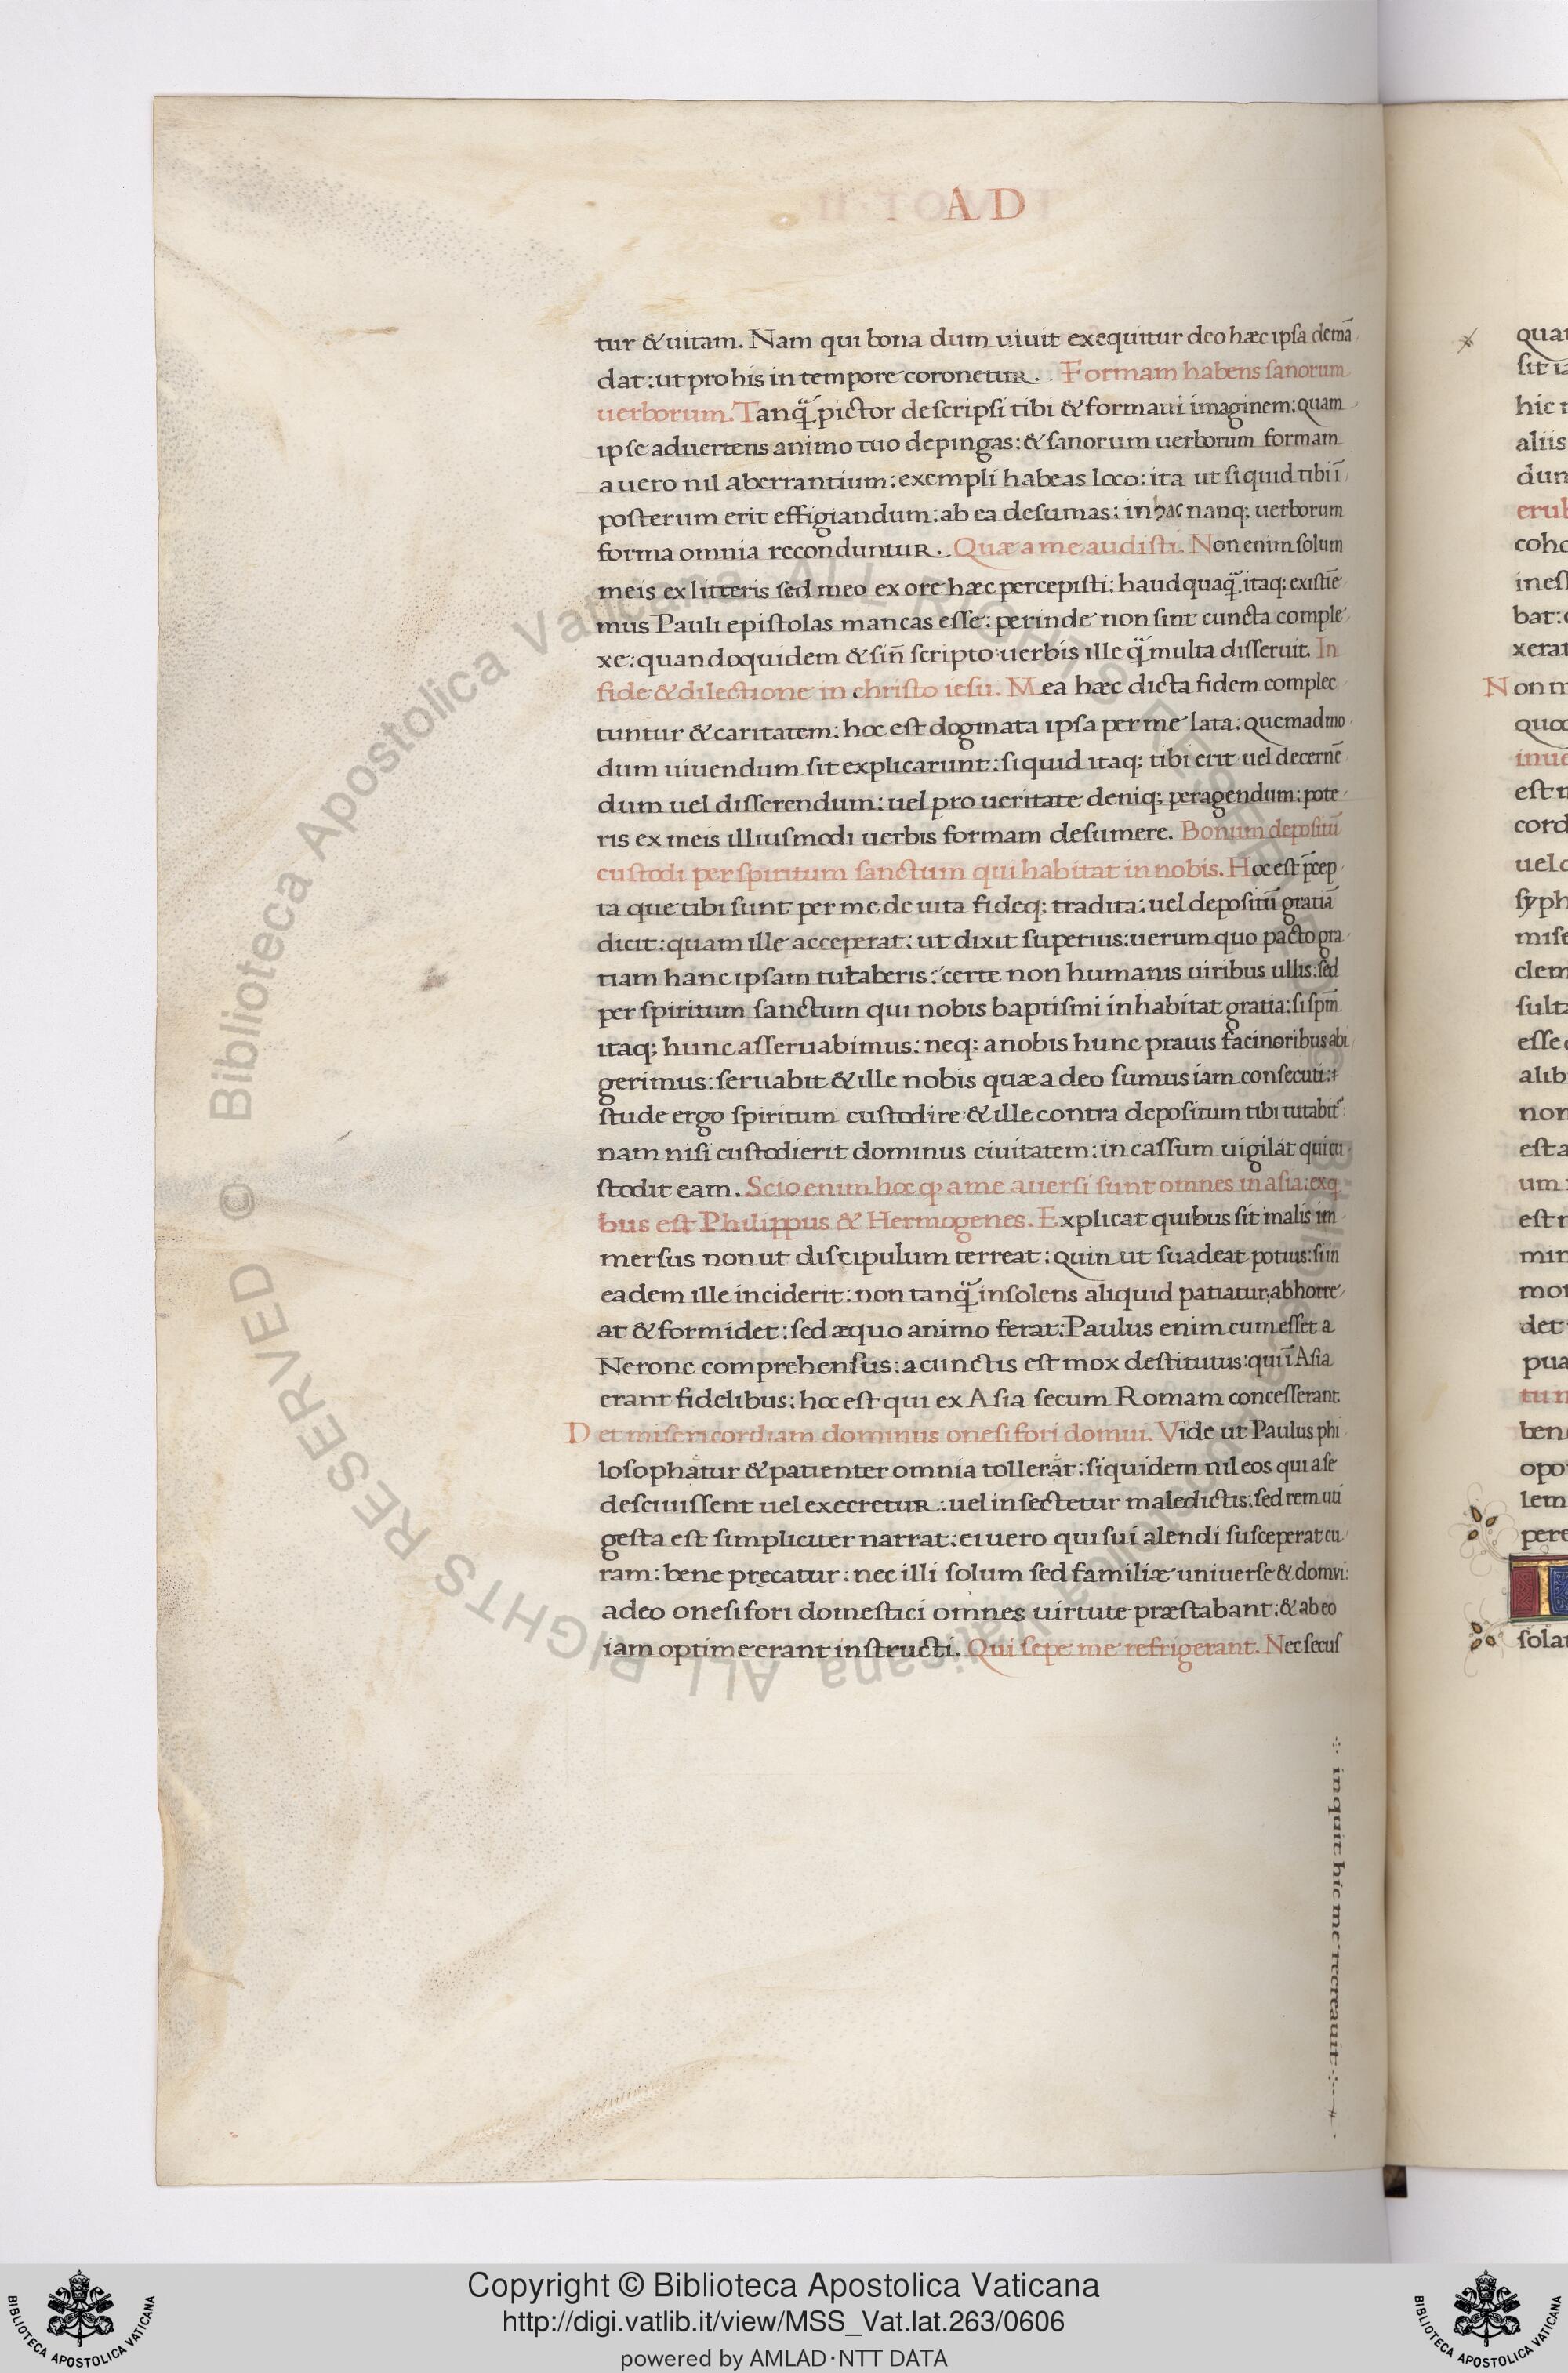 AD
tur & uitam. Nam qui bona dum uiuit exequitur deo hæc ipsa demā
dat: ut pro his in tempore coronetur. Formam habens sanorum
uerborum. Tanq̄ pictor descripsi tibi & formaui imaginem: quam
ipse aduertens animo tuo depingas: & sanorum uerborum formam
a uero nil aberrantium: exempli habeas loco: ita ut siquid tibi ī
posterum erit effigiandum: ab ea desumas: in hac nanq; uerborum
forma omnia reconduntur. Quæ a me audisti. Non enim solum
meis ex litteris sed meo ex ore hæc percepisti: haud quaq̄ itaq; existiē
mus Pauli epistolas mancas esse: perinde non sint cuncta comple
xe: quandoquidem & sin̄ scripto uerbis ille q̄ multa disseruit. In
fide & dilectione in christo iesu. Mea hæc dicta fidem complec
tuntur & caritatem: hoc est dogmata ipsa per me lata: quemadmo
dum uiuendum sit explicarunt: siquid itaq; tibi erit uel decernē
dum uel disserendum: uel pro ueritate deniq; peragendum: pote
ris ex meis illiusmodi uerbis formam desumere. Bonum depositū
custodi per spiritum sanctum qui habitat in nobis. Hoc est p̄cep
ta que tibi sunt per me de uita fideq; tradita: uel depositū gratiā
dicit: quam ille acceperat: ut dixit superius: uerum quo pacto gra
tiam hanc ipsam tutaberis: certe non humanis uiribus ullis: sed
per spiritum sanctum qui nobis baptismi inhabitat gratia: si spm̄
itaq; hunc asseruabimus: neq; a nobis hunc prauis facinoribus abi
gerimus: seruabit & ille nobis quæ a deo sumus iam consecuti:
stude ergo spiritum custodire: & ille contra depositum tibi tutabit̄:
nam nisi custodierit dominus ciuitatem: in cassum uigilat qui cu
stodit eam. Scio enim hoc ꝙ a me auersi sunt omnes in asia: ex q
bus est Philippus & Hermogenes. Explicat quibus sit malis im
mersus non ut discipulum terreat: quin ut suadeat potius: si in
eadem ille inciderit: non tanq̄ insolens aliquid patiatur, abhorre
at & formidet: sed æquo animo ferat: Paulus enim cum esset a
Nerone comprehensus: a cunctis est mox destitutus: qui ī Asia
erant fidelibus: hoc est qui ex Asia secum Romam concesserant.
Det misericordiam dominus onesifori domui. Vide ut Paulus phi
losophatur & patienter omnia tollerat: siquidem nil eos qui a se
desciuissent uel execretur: uel insectetur maledictis: sed rem uti
gesta est simpliciter narrat: ei uero qui sui alendi susceperat cu
ram: bene precatur: nec illi solum sed familiæ uniuerse & domui:
adeo onesifori domestici omnes uirtute præstabant: & ab eo
iam optime erant instructi. Qui sepe me refrigerant. Nec secus
inquit hic me recreauit
Copyright © Biblioteca Apostolica Vaticana
http://digi.vatlib.it/view/MSS_Vat.lat.263/0606
powered by AMLAD·NTT DATA